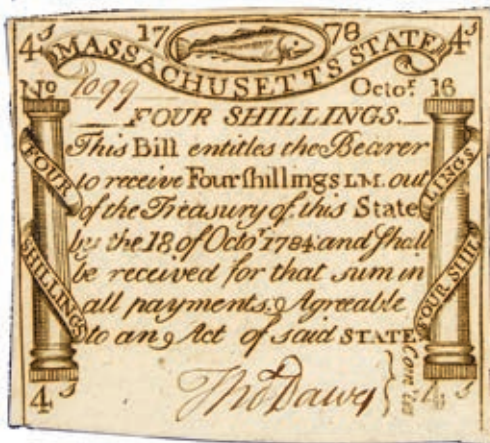 4s 17 78 4s
MASSACHUSETTS STATE
No 1099 Octor. 16
FOUR SHILLINGS.
This Bill entitles the Bearer
to receive Four ſhillings LM. out
of the Treasury of this State
by the 18 of Octor. 1784 and Shall
be received for that sum in
all payments, Agreable
to an Act of said STATE
FOUR SHILLINGS
FOUR SHILLINGS
Thos Dawes } Com'tee
4s 4s